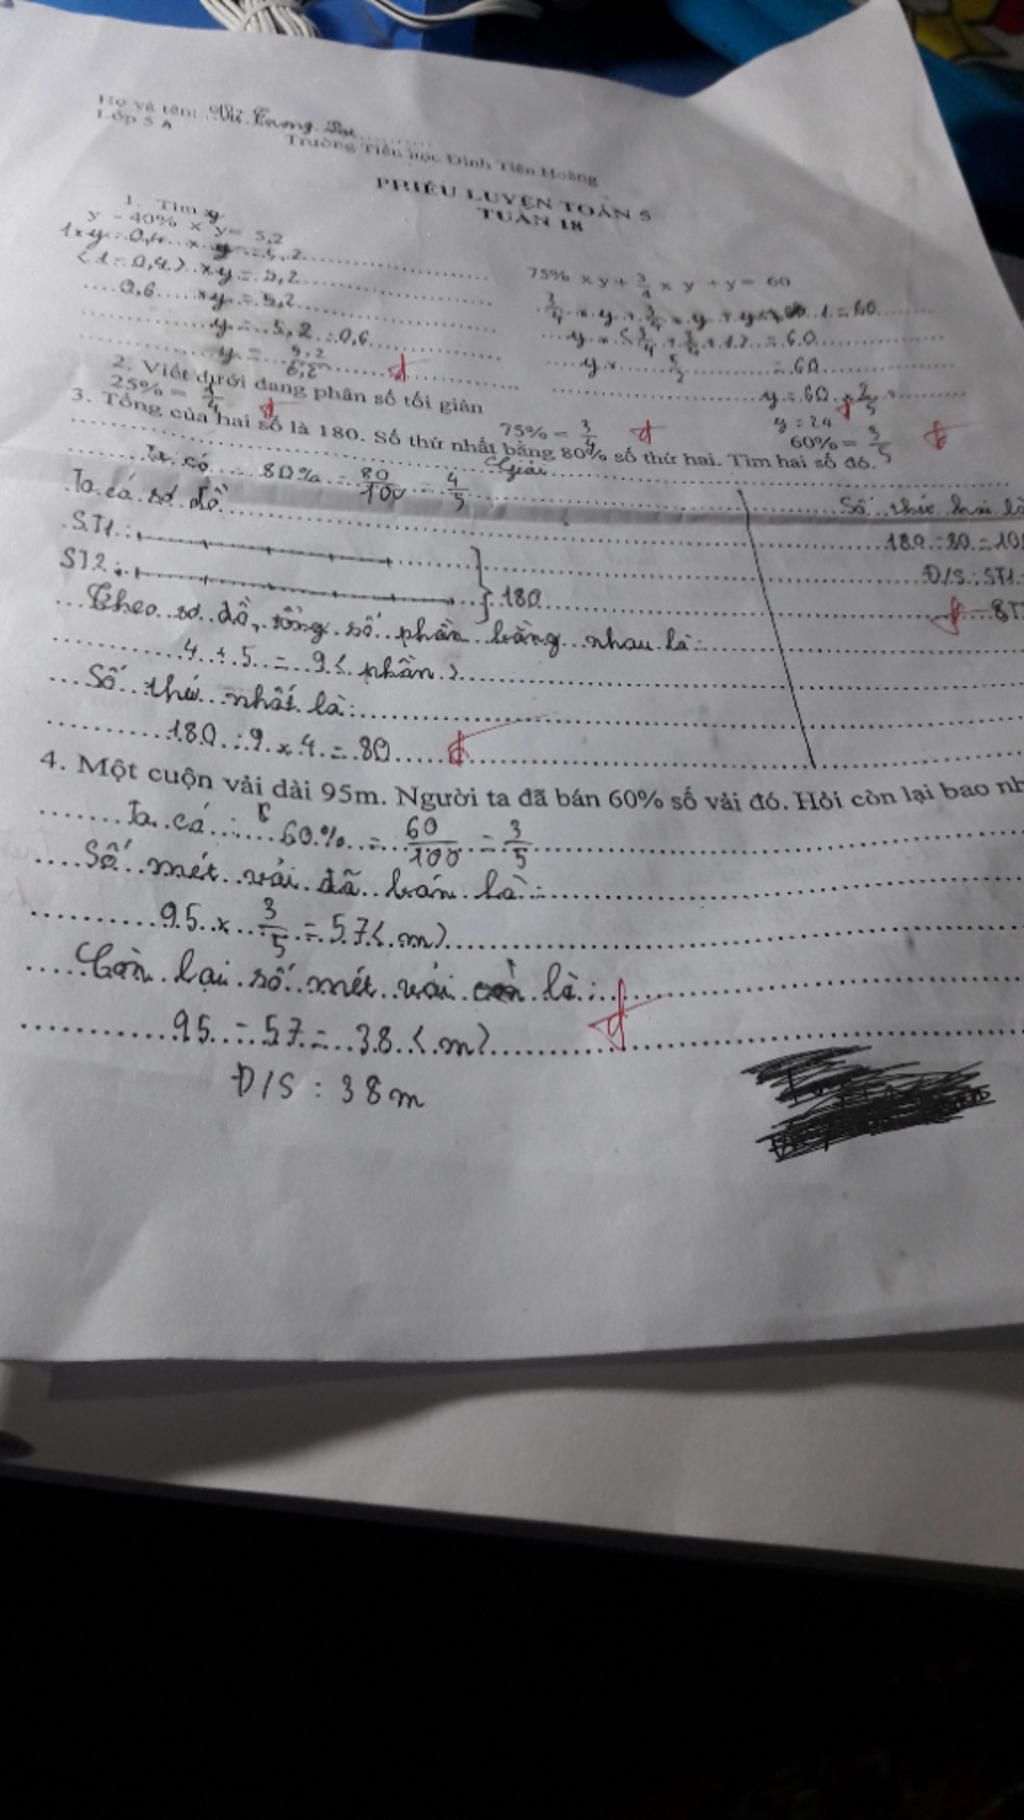 Họ và tên: Vũ Trung
Lớp 5 A
Trường Tiểu học Đinh Tiên Hoàng
PHIẾU LUYỆN TOÁN 5
TUẦN 18
1. Tìm y
y - 40% x y = 5,2
1 x y - 0,4 x y = 5,2
(1 - 0,4) x y = 5,2
0,6 x y = 5,2
y = 5,2 : 0,6
y =
75% x y + 3/4 x y + y = 60
3/4 x y + 3/4 x y + y x 1 = 60
y x (3/4 + 3/4 + 1) = 60
y x 5/2 = 60
y = 60 x 2/5
y = 24
2. Viết dưới dạng phân số tối giản
25% = 1/4 75% = 3/4 60% = 3/5
3. Tổng của hai số là 180. Số thứ nhất bằng 80% số thứ hai. Tìm hai số đó.
Giải
Ta có 80% = 80/100 = 4/5
Ta có sơ đồ
ST1:
ST2:
180
Theo sơ đồ, tổng số phần bằng nhau là:
4 + 5 = 9 (phần)
Số thứ nhất là:
180 : 9 x 4 = 80
Số thứ hai là
180 - 80 = 10
Đ/S: ST1:
ST
4. Một cuộn vải dài 95m. Người ta đã bán 60% số vải đó. Hỏi còn lại bao
Ta có: 60% = 60/100 = 3/5
Số mét vải đã bán là:
95 x 3/5 = 57 (m)
Còn lại số mét vải là:
95 - 57 = 38 (m)
Đ/S : 38 m